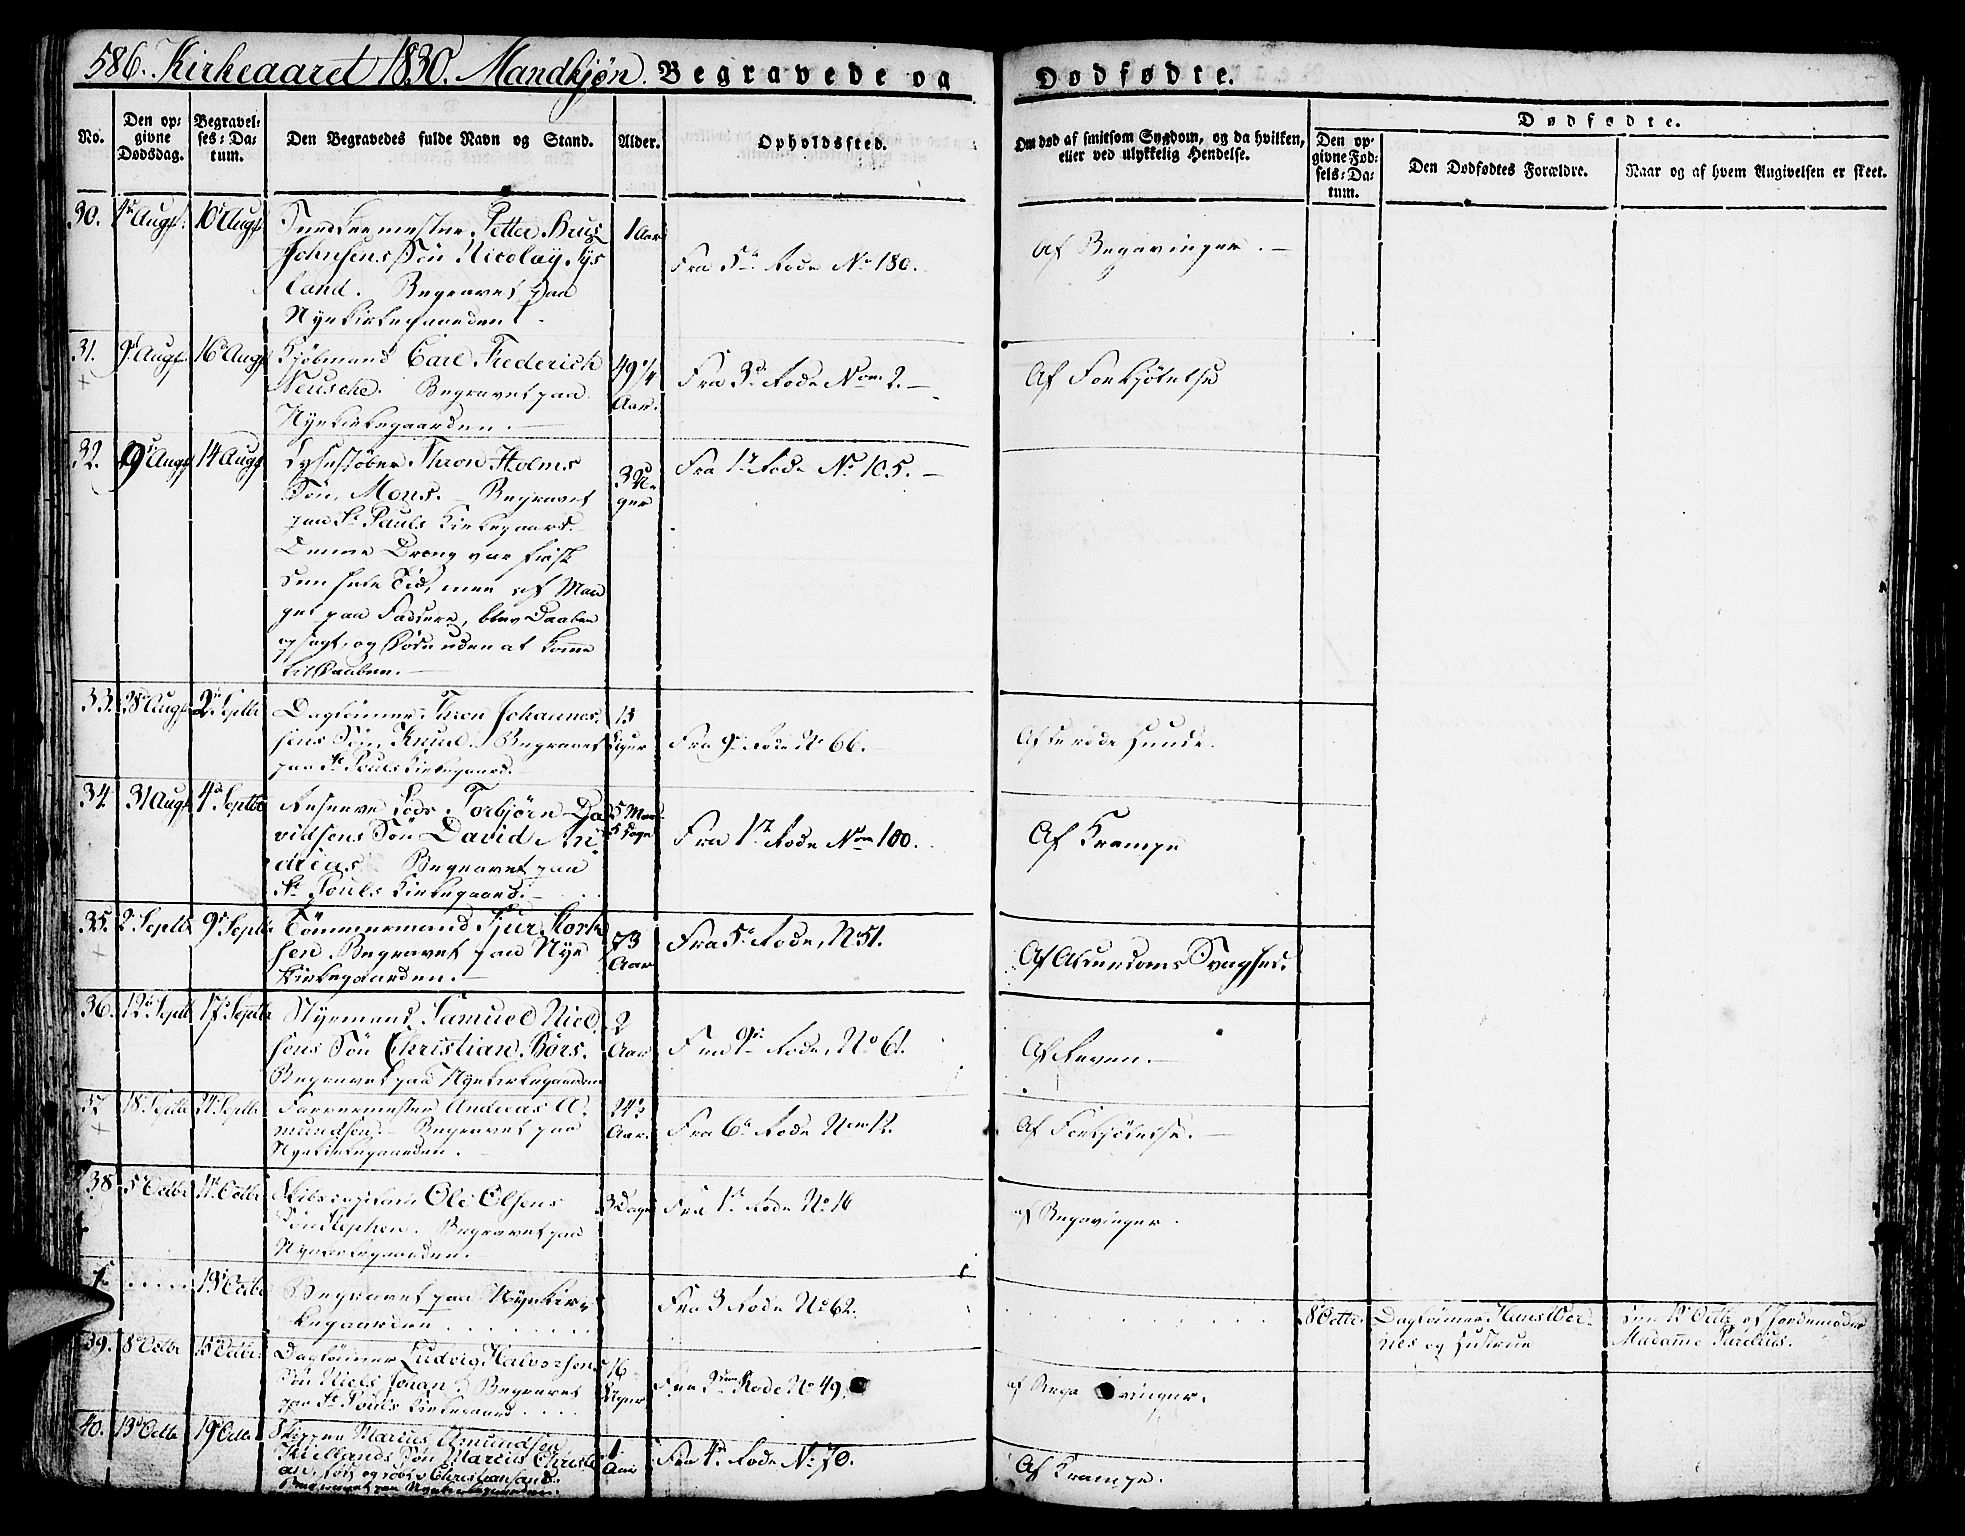 586. Kirkeaaret 1830. Mandkjøn. Begravede og Dødfødte.
No.
Den op=
givne
Dødsdag.
Begravel=
ses=Da=
tum.
Den Begravedes fulde Navn og Stand.
Alder.
Opholdssted.
Om død af smitsom Sygdom, og da hvilken,
eller ved ulykkelig Hendelse.
Dødfødte.
Den op=
givne Fød=
sels=Da=
tum.
Den Dødfødtes Forældre.
Naar og af hvem Angivelsen er skeet.
30. 4de Augst. 10de Augst
Petter Brus
Johnsens Søn Nicolay Sys
land. Begravet paa
Nyekirkegaarden.
1 Aar
Fra 5te Rode No 180.
Af Begavinger.
31. 9de Augst. 16de Augst
Kjøbmand Carl Frederich
Neusche. Begravet paa
Nyekirkegaarden.
49 1/4
Aar.
Fra 3de Rode No 2.
Af Forkjølelse
32. 9de Augst 14 Augst
Lysestøber Thron Holms
Søn, Mons. Begravet
paa St Pauls Kirkegaard.
Denne Dreng var frisk
den hele Tid, men af Man
gel paa Faddere, blev Daaben
opsagt, og døde uden at komme
til Daaben.
3 U-
ger
Fra 1ste Rode No 105.
33. 28de Augst. 2den Septbr
Dagleiner Thron Johannes
sens Søn, Knud. Begravet
paa St Pouls Kirkegaard.
13
Uger
Fra 9de Rode No 66.
Af Hunde.
34. 31 Augst 4de Septbr
Lods Torbjørn Da
vidsens Søn David An
dreas Begravet paa
St Pouls Kirkegaard.
5 Maa
5 Dage
Fra 1ste Rode No 100.
Af Krampe
35. 2 Septbr 9de Septbr
Tømmermand Sjur Stork
sen. Begravet paa Nye
Kirkegaarden.
73
Aar
Fra 5te Rode, No 51.
Af Alderdoms Svaghed.
36. 12de Septbr 17de Septbr
Styrmand Samuel Niel
sens Søn Christian Børs.
Begravet paa Nyekirkegaarden
2
Aar
Fra 9de Rode, No 61.
Af
37 18de Septbr 24de Septbr
Farvermester Andreas A
mundsen. Begravet paa
Nyekirkegaarden.
Aar.
Fra 6te Rode No 12.
Af Forkjølelse.
38 5te Octbr 11te Octbr
Skibscapitain Ole Olsens
Søn Stephen. Begravet paa
Nyekirkegaarden.
3 Dage
Fra 1ste Rode No 16
af Begavinger.
1. . . . . . 13de Octbr
Begravet paa Nyekirk
kegaarden . . . . . .
Fra 3 Rode No 62.
8 Octbr.
Dagleiner Hans Wer-
nes og Hustrue
den 12 Octbr af Jordemoder
Madamme Purelius.
39. 8de Octbr 15de Octbr.
Dagleiner Ludvig Halvorsens
Søn Niels Johan. Begravet
paa St Pouls Kirkegaard . . . .
16
Uger
Fra Rode No 49.
af Bega vinger.
40. 13de Octbr 19de Octbr
Skipper Marius Amundsen
Kiellands Søn Marius Christi
an, født og døbt i Christiansand.
Begravet paa Nyekirkegaarden.
1
Aar
Fra 4de Rode No 70.
Af Krampe.